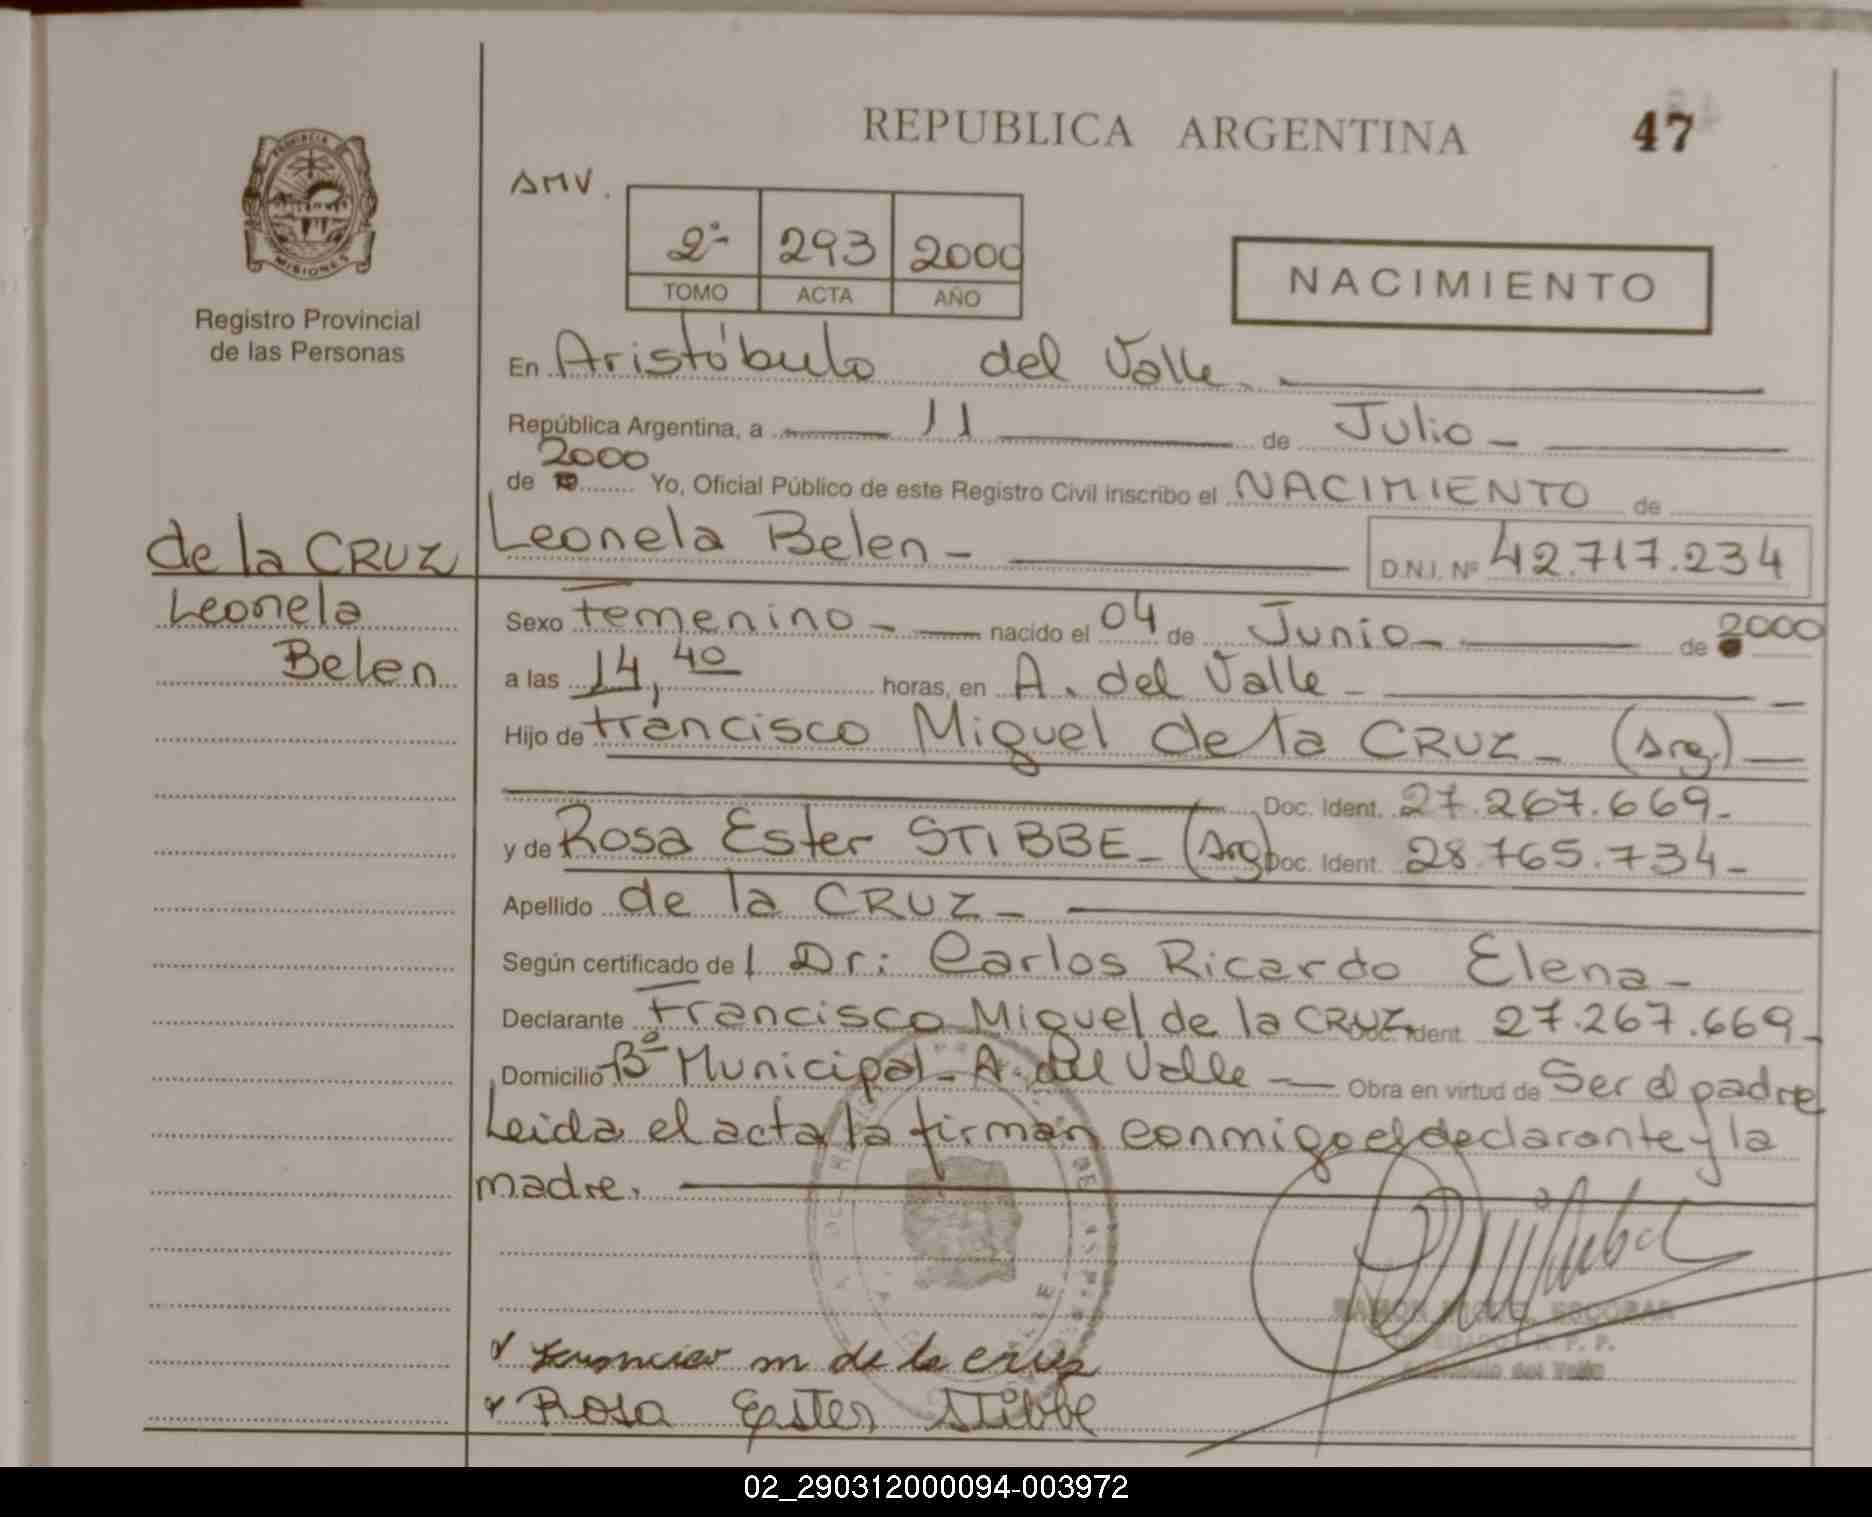 REPUBLICA ARGENTINA
47
PROVINCIA
MISIONES
Registro Provincial
de las Personas
AMV.
2º 293 2000
TOMO ACTA AÑO
NACIMIENTO
En Aristóbulo del Valle
República Argentina, a 11 de Julio
2000
de Yo, Oficial Público de este Registro Civil inscribo el NACIMIENTO de
de la CRUZ
Leonela
Belen
Leonela Belen D.N.I. Nº 42.717.234
Sexo Femenino nacido el 04 de Junio de 2000
a las 14,40 horas, en A. del Valle
Hijo de Francisco Miguel de la CRUZ (Arg.)
Doc. Ident. 27.267.669
y de Rosa Ester STIBBE (Arg) Doc. Ident. 28.765.734
Apellido de la CRUZ
Según certificado de Dr: Carlos Ricardo Elena
Declarante Francisco Miguel de la CRUZ Doc. Ident. 27.267.669
Domicilio Bº Municipal - A. del Valle Obra en virtud de Ser el padre
Leida el acta la firman conmigo el declarante y la
madre.
m de la cruz
Rosa Ester Stibbe
ESCOBAR
del Valle
02_290312000094-003972